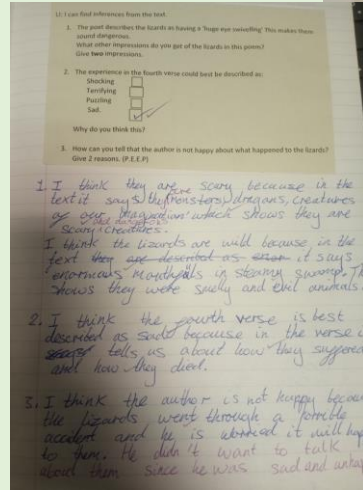 LI: I can find inferences from the text.
1. The poet describes the lizards as having a 'huge eye swivelling' This makes them
sound dangerous.
What other impressions do you get of the lizards in this poem?
Give two impressions.
2. The experience in the fourth verse could best be described as:
Shocking
Terrifying
Puzzling
Sad.
Why do you think this?
3. How can you tell that the author is not happy about what happened to the lizards?
Give 2 reasons. (P.E.E.P)
1. I think they are scary because in the
text it says they were monsters, dragons, creatures
of our imagination' which shows they are
scary creatures.
I think the lizards are wild because in the
text it says
enormous mouthfuls in steamy swamp. Th
shows they were smelly and evil animals.
2. I think the fourth verse is best
described as sad because in the verse
tells us about how they suffered
and how they died.
3. I think the author is not happy becau
the lizards went through a horrible
accident and he is worried it will hap
to them. He didn't want to talk
about them since he was sad and unha